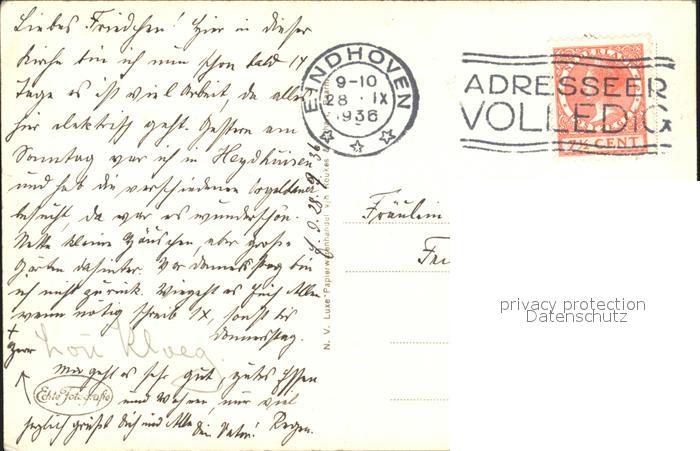 Liebes Friedchen! Hier in dieser
Kirche bin ich nun schon bald 14
Tage es ist viel Arbeit, da alles
hier elektrisch geht. Gestern am
Sonntag war ich in Heydhuisen
und hab die verschiedenen
besucht, da war es wunderschön.
Nette kleine Häuschen, aber große
Gärten dahinter. Vor Donnerstag bin
ich nicht zurück. Wie geht es Euch Allen
wenn nötig schreib 1x, sonst bis
Donnerstag.
Mir geht es sehr gut, gutes Essen
und Wohnen, nur viel
Regen.
herzlich grüßt Dich und Alle Dein Vater!
Echte Fotografie
28.9.36
N. V. Luxe Papierwarenhandel v/h Roukes
EINDHOVEN
9-10
28 IX
1936
ADRESSEER
VOLLEDIG
NEDERLAND
7½ CENT
Fräulein
privacy protection
Datenschutz